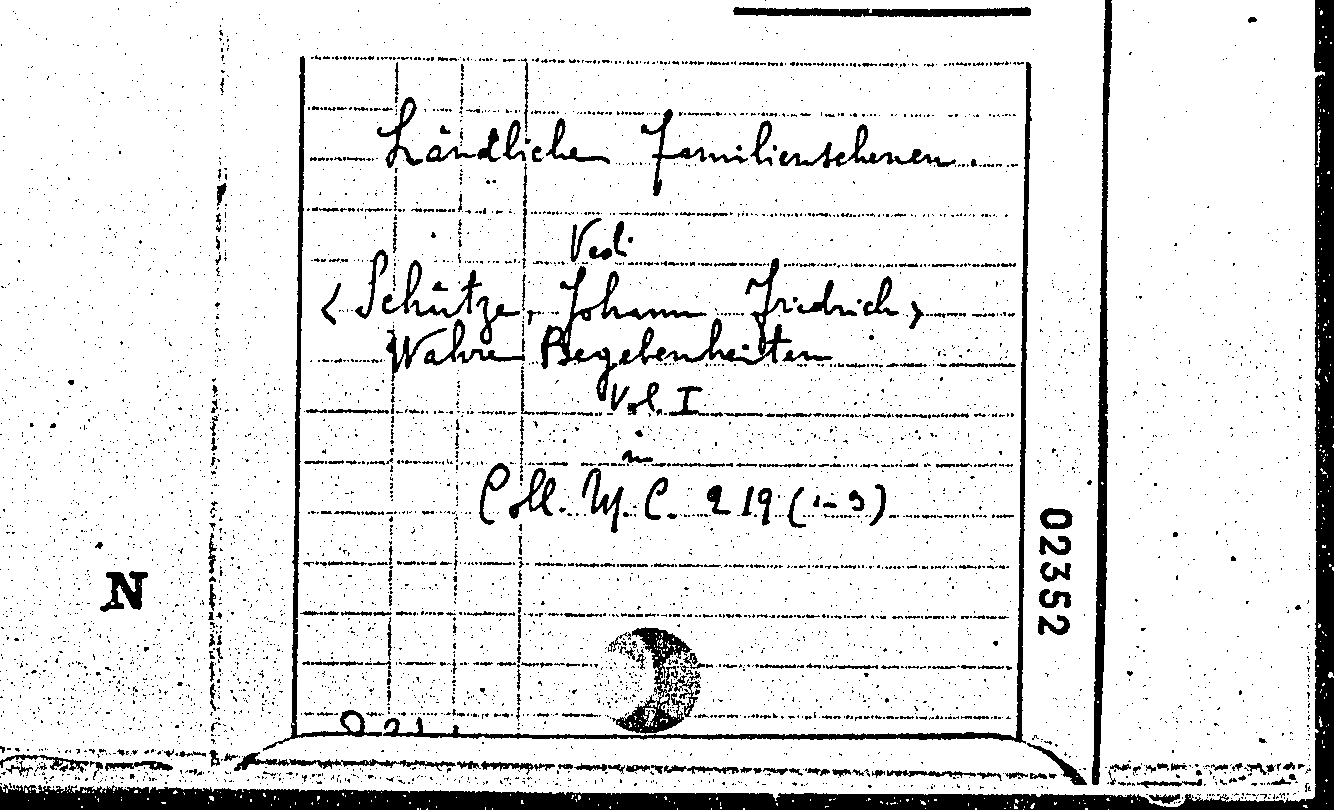 Ländlichen Familienschenen.
Vedi
<Schütze, Johann Friedrich>
Wahre Begebenheiten
Vol. I
in
Coll. M. C. 219 (1-3)
02352
N